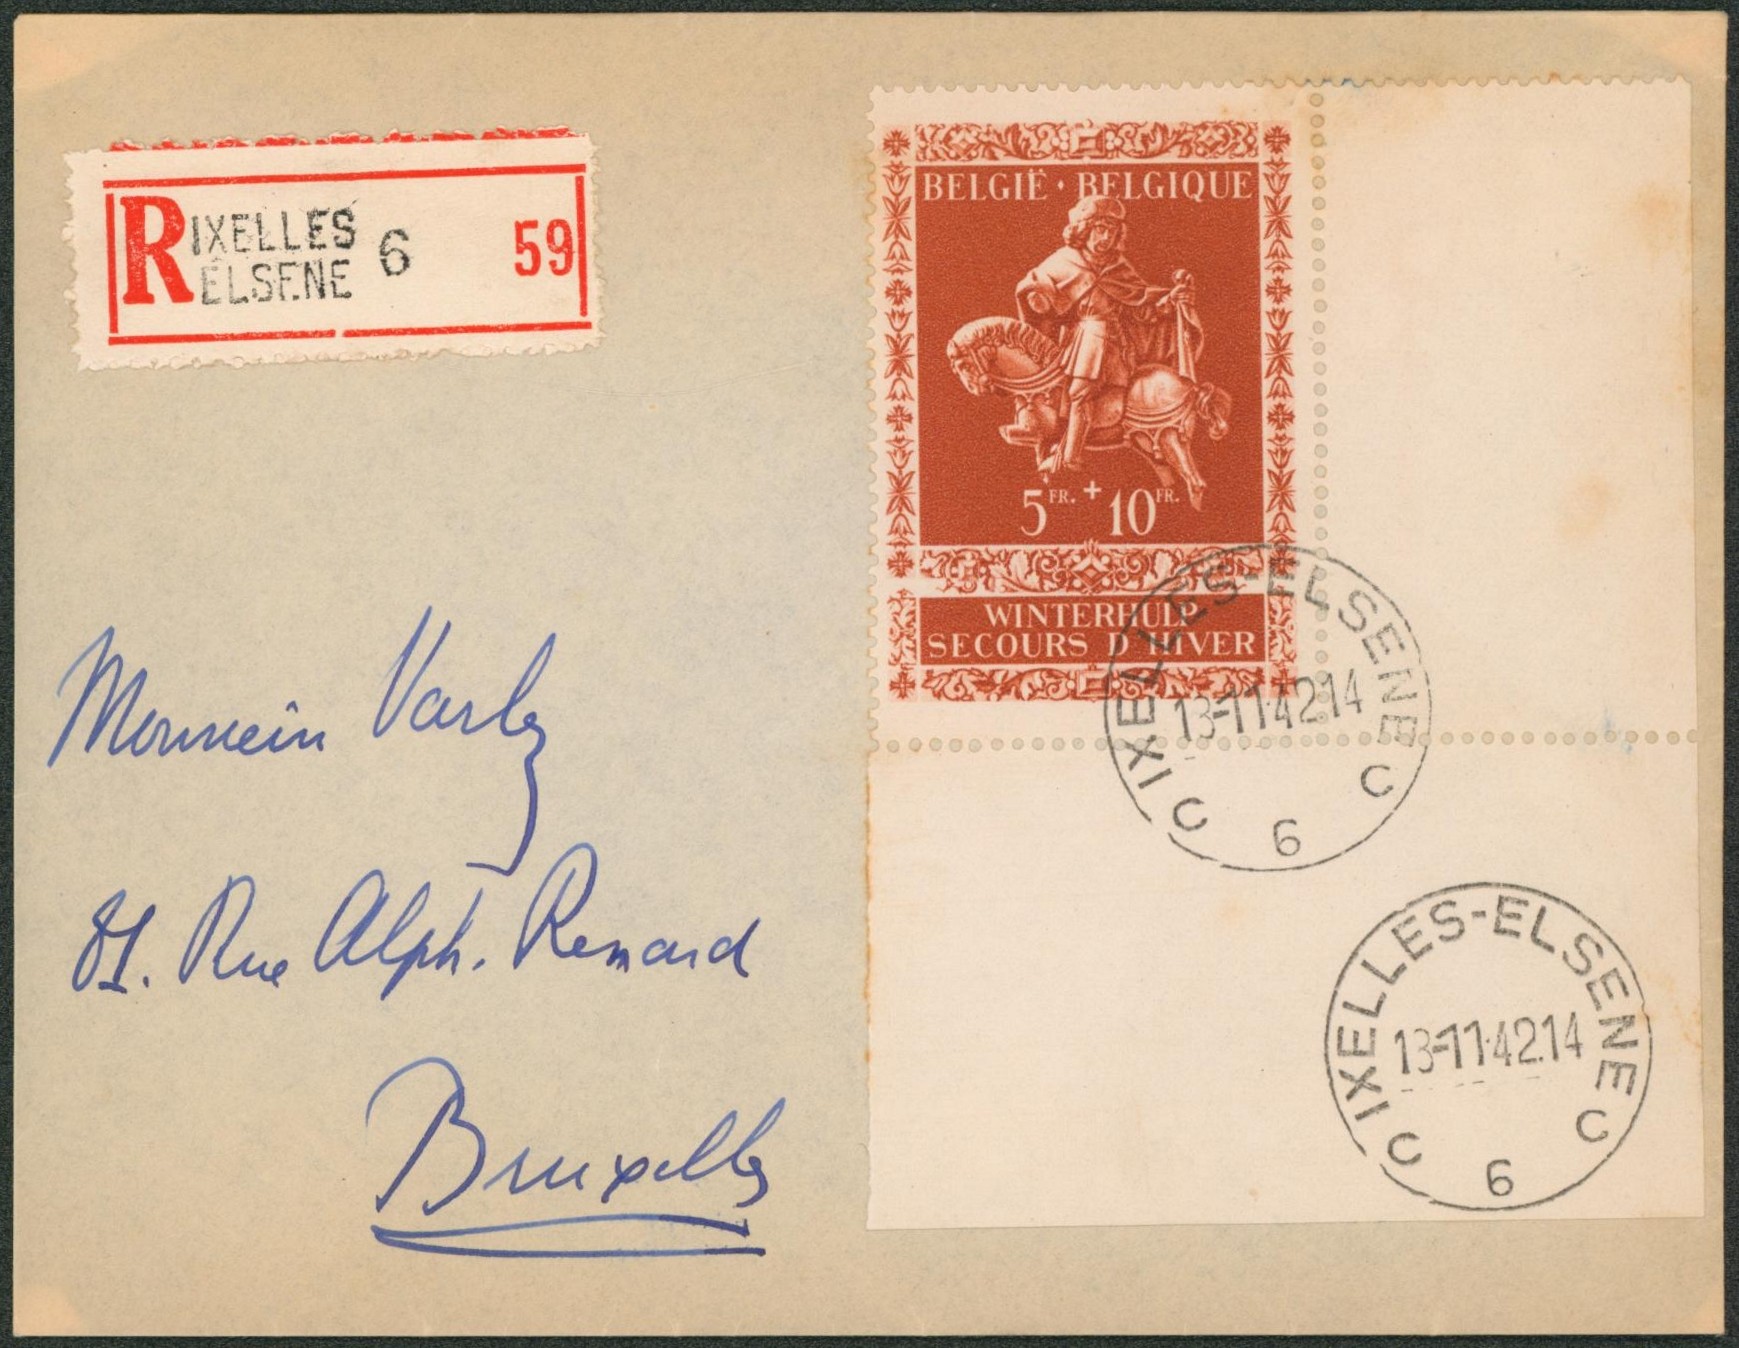 R IXELLES 6 59
ELSENE
BELGIË · BELGIQUE
5 FR. + 10 FR.
WINTERHULP
SECOURS D'HIVER
IXELLES-ELSENE
13-11-42 14
C 6 C
Monsieur Varlez
81. Rue Alph. Renard
Bruxelles
IXELLES-ELSENE
13-11-42 14
C 6 C